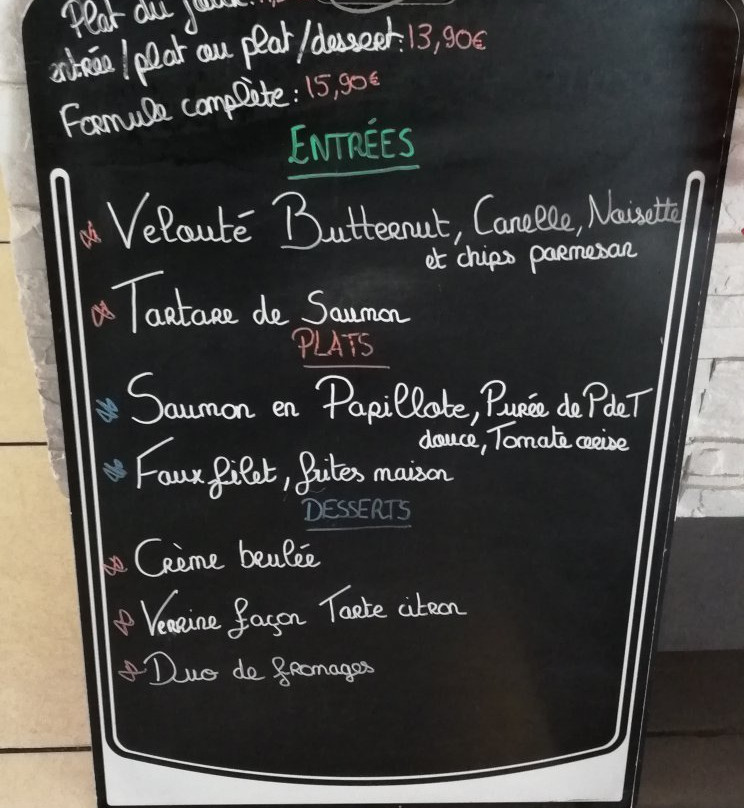 Plat du jour:
entrée/plat ou plat/dessert: 13,90€
Formule complète: 15,90€
ENTRÉES
Velouté Butternut, Canelle, Noisette
et chips parmesan
Tartare de Saumon
PLATS
Saumon en Papillote, Purée de P de T
douce, Tomate cerise
Faux filet, frites maison
DESSERTS
Crème brulée
Verrine façon Tarte citron
Duo de fromages